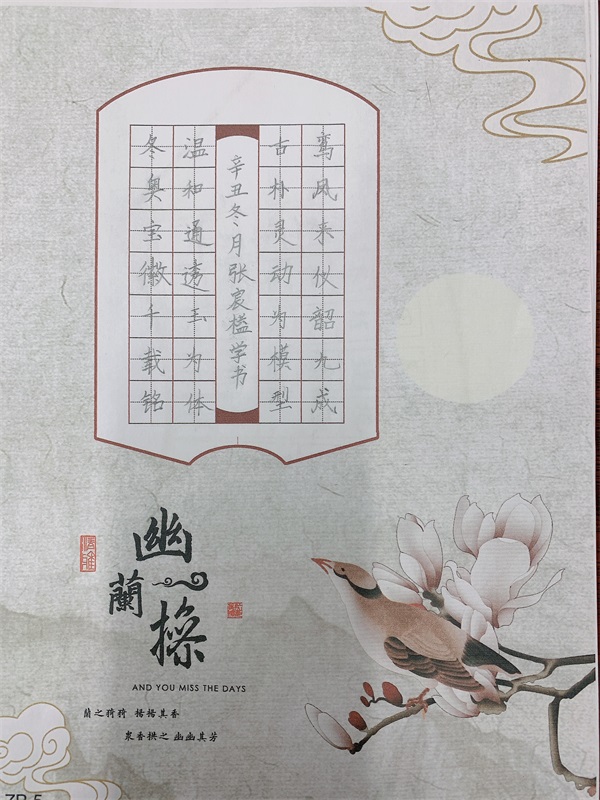 鸾凤来仪韶九成
古朴灵动为模型
辛丑冬月张宸榼学书
温和通违玉为体
冬奥宝徽千载铭
幽蘭操
AND YOU MISS THE DAYS
蘭之猗猗 楊楊其香
衆香拱之 幽幽其芳